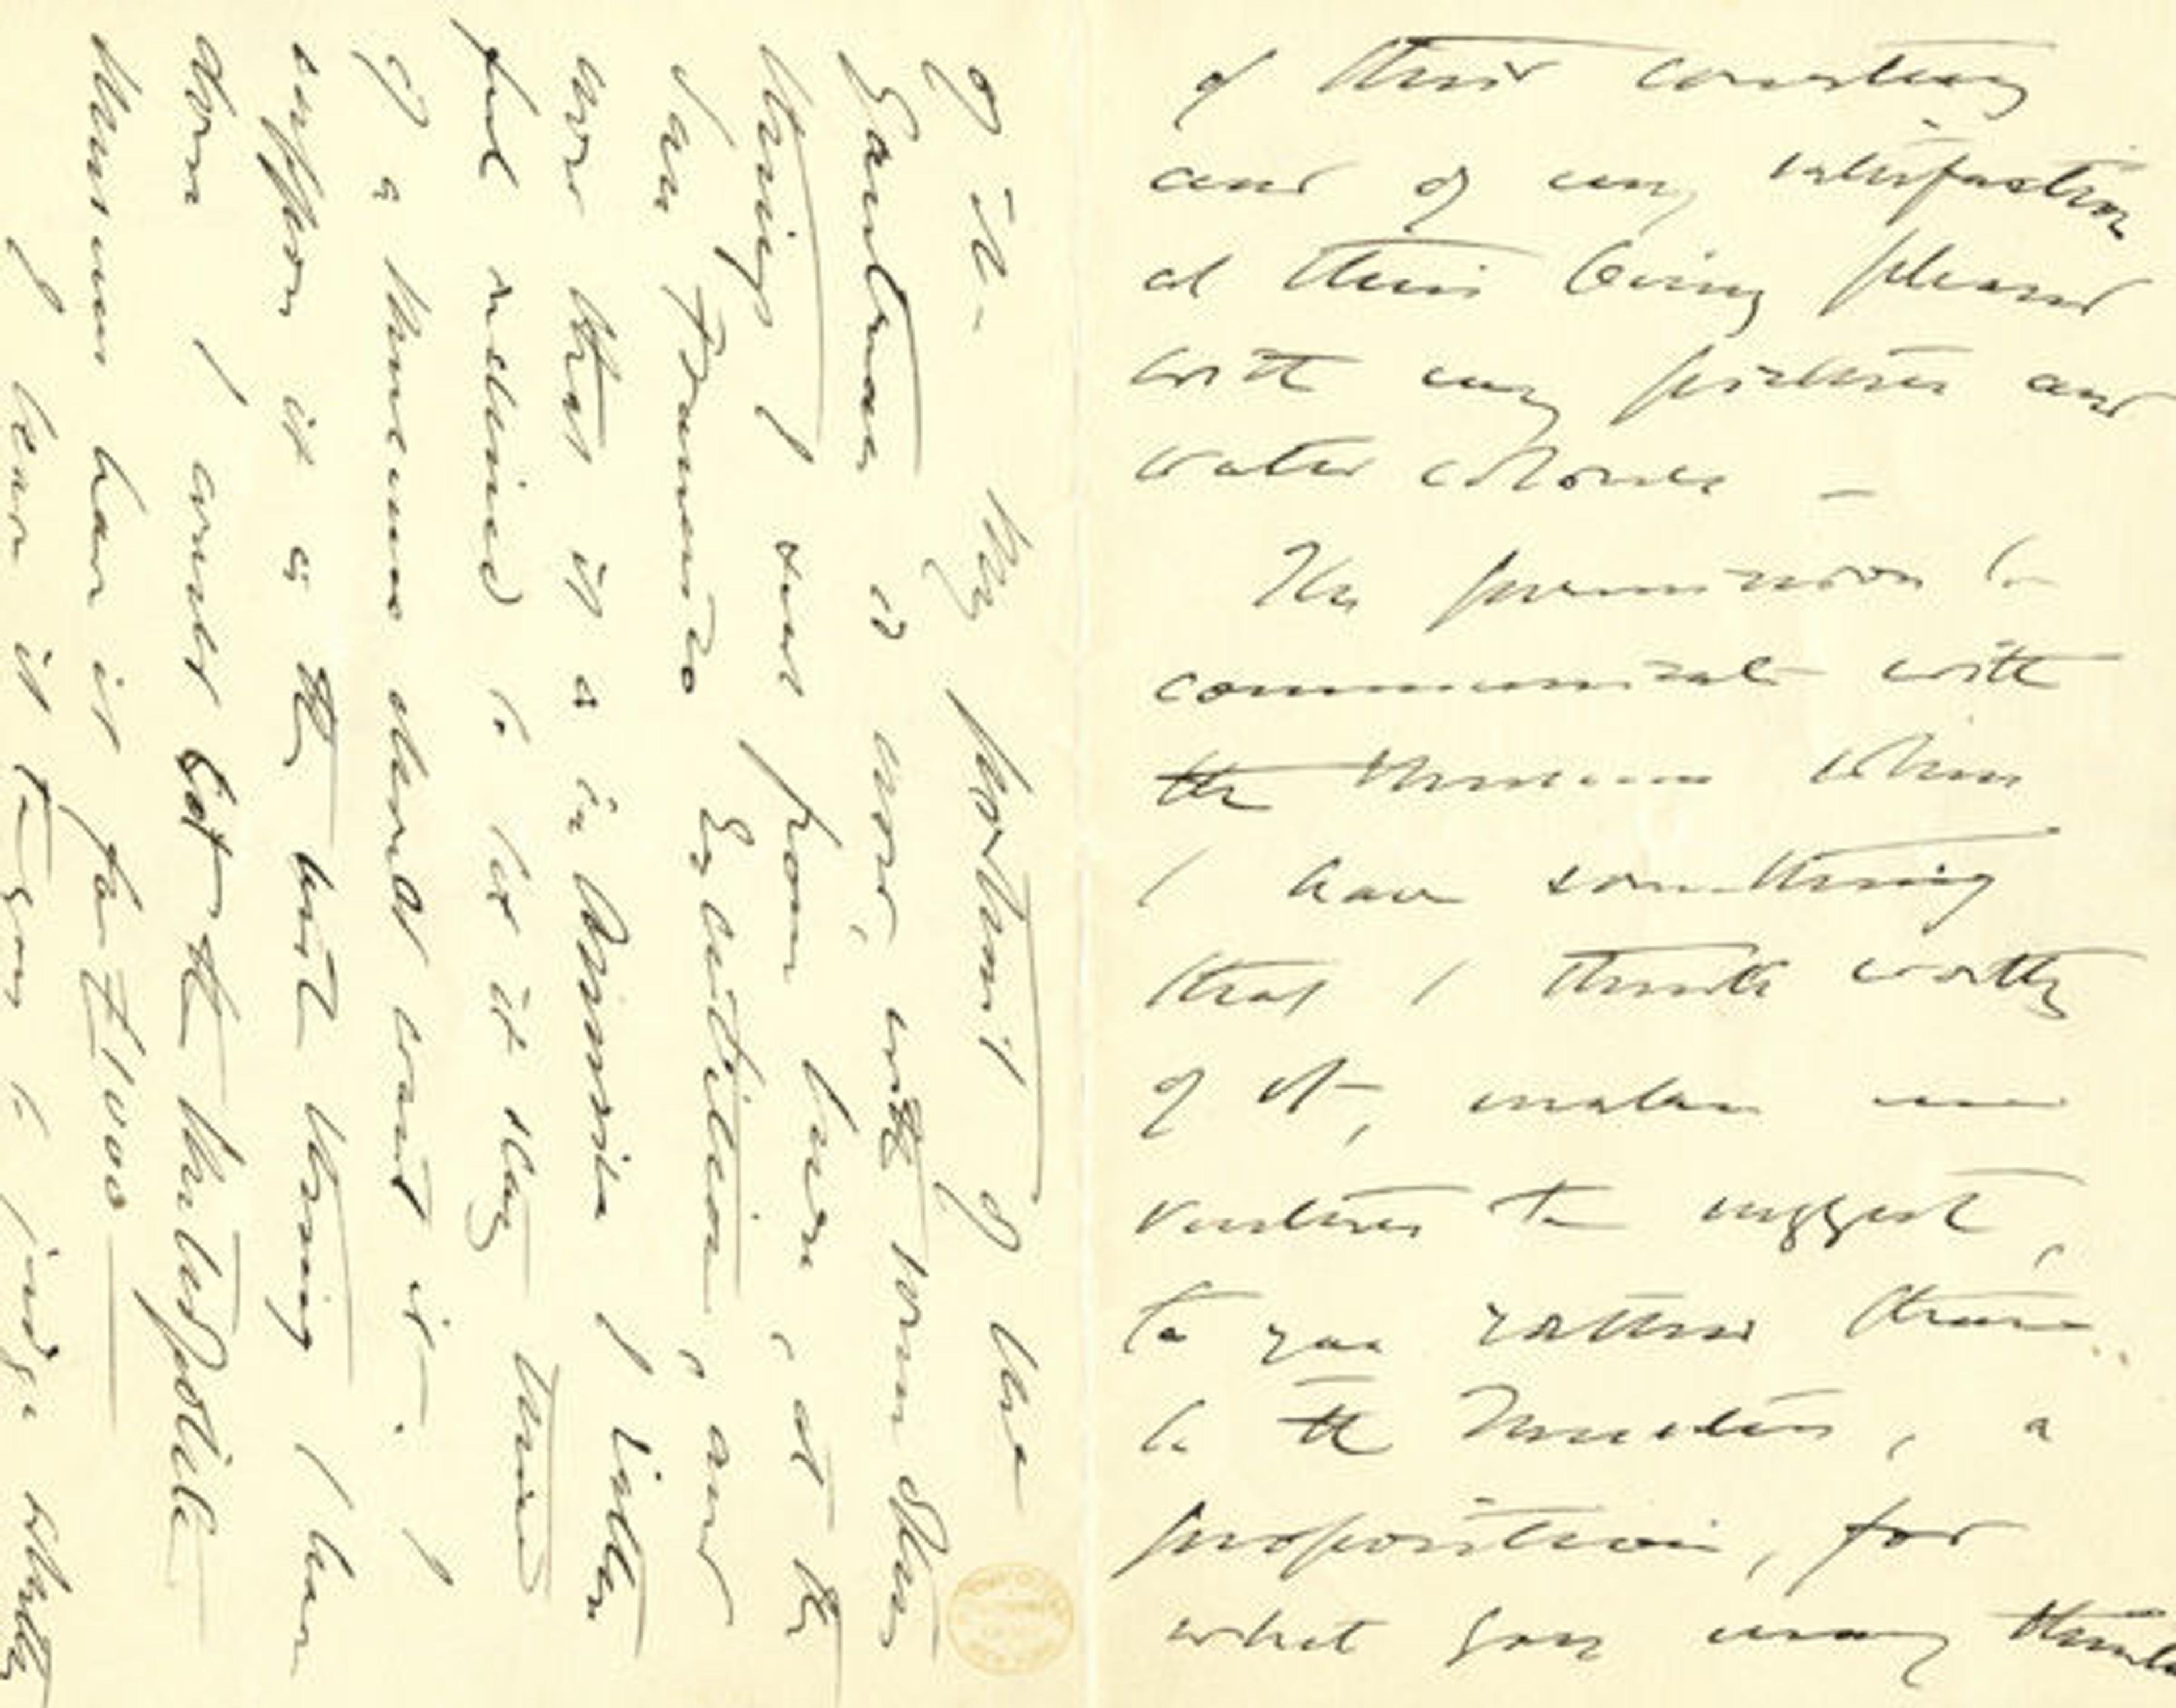 of their courtesy
and of my satisfaction
at their being pleased
with my pictures and
water colours —
The permission to
communicate with
the Museum when
I have something
that I think worthy
of it, makes me
venture to suggest,
to you rather than
to the Trustees, a
proposition, for
what you may think
of it – My portrait of Mme
Gautreau is now, with some other
things I sent from here, at the
San Francisco Exhibition, and
now that it is in America I rather
feel inclined to let it stay there
if a Museum should want it. I
suppose it is the best thing I have
done. I would let the Metropolitan
Museum have it for £1000
I leave it to you to judge whether